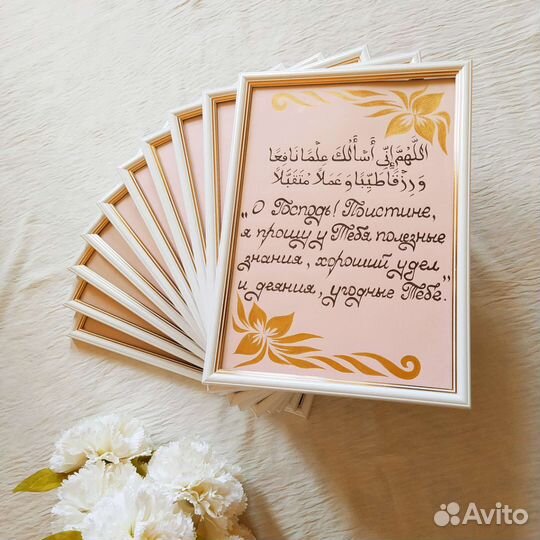 اللَّهُمَّ إِنِّي أَسْأَلُكَ عِلْمًا نَافِعًا
وَرِزْقًا طَيِّبًا وَعَمَلًا مُتَقَبَّلًا
„О Господь! Поистине,
я прошу у Тебя полезные
знания, хороший удел
и деяния, угодные Тебе.”
Avito